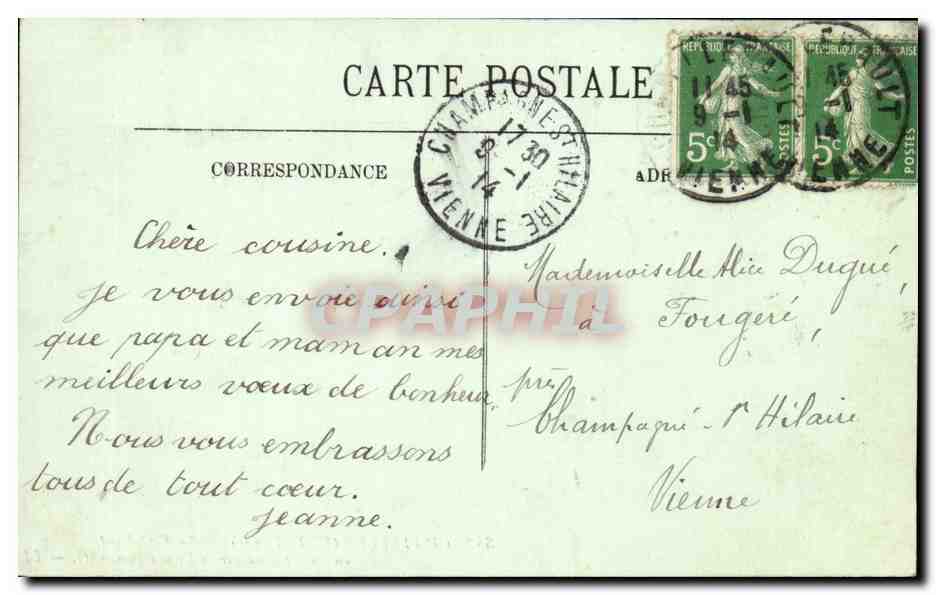 CARTE POSTALE
CORRESPONDANCE
ADR
REPUBLIQUE FRANÇAISE
5c
POSTES
REPUBLIQUE FRANÇAISE
5c
POSTES
11 45
9 -1
14
VIENNE
45
-1
14
VIENNE
CHAMPAGNE ST HILAIRE
17 30
9 -1
14
VIENNE
Chère cousine.
Je vous envoie ainsi
que papa et maman mes
meilleurs vœux de bonheur.
Nous vous embrassons
tous de tout cœur.
Jeanne.
Mademoiselle Alice Dugué,
à Fougeré,
près
Champagné - St Hilaire
Vienne
CPAPHIL